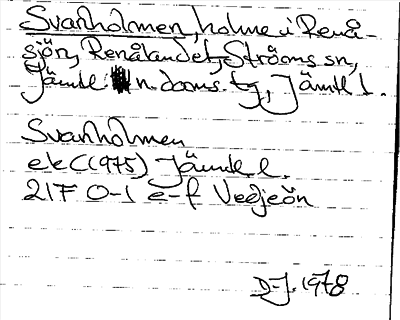 Svanholmen, holme i Renå-
sjön, Renålandet, Ströms sn,
Jämtl. n. doms. tg, Jämtl l.
Svanholmen
ek C (1975) Jämtl l.
21F 0-1 e-f Vedjeön
D-J. 1978